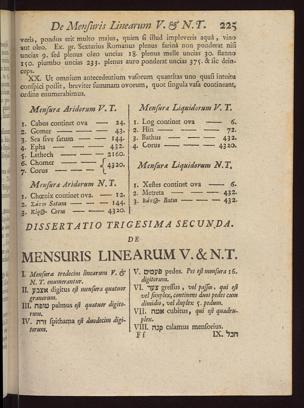 De Mensuris Linearum V. & N. T. 225
veris, pondus erit multo majus, quam si illud impleveris aquâ, vino
aut oleo. Ex. gr. Sextarius Romanus plenus farinâ non ponderat nisi
uncias 9. sed plenus oleo uncias 18. plenus melle uncias 30. stanno
150. plumbo uncias 233. plenus auro ponderat uncias 375. & sic dein-
ceps.
XX. Ut omnium antecedentium vasorum quantitas uno quasi intuitu
conspici possit, breviter summam ovorum, quot singula vasa contineant,
ordine enumerabimus.
Mensuræ Aridorum V. T.
1. Cabus continet ova — 24.
2. Gomer — 43.
3. Sea sive satum — 144.
4. Epha — 432.
5. Lethech — 2160.
6. Chomer
7. Corus — 4320.
Mensuræ Aridorum N. T.
1. Chœnix continet ova — 12.
2. Σάτον Satum — 144.
3. Κόρος Corus 4320.
Mensuræ Liquidorum V. T.
1. Log continet ova — 6.
2. Hin — 72.
3. Bathus — 432.
4. Corus — 4320.
Mensuræ Liquidorum N. T.
1. Xestes continet ova — 6.
2. Metreta — 432.
3. Βάτος Batus — 432.
DISSERTATIO TRIGESIMA SECUNDA.
DE
MENSURIS LINEARUM V. & N. T.
I. Mensuræ tredecim linearum V. &
N. T. enumerantur.
II. אצבע digitus est mensura quatuor
granorum.
III. טפח palmus est quatuor digito-
rum.
IV. זרת spithama est duodecim digi-
torum.
V. פעמים pedes. Pes est mensura 16.
digitorum.
VI. צעד gressus, vel passus, qui est
vel simplex, continens duos pedes cum
dimidio, vel duplex 5. pedum.
VII. אמה cubitus, qui est quadru-
plex.
VIII. קנה calamus mensorius.
Ff IX. חבל